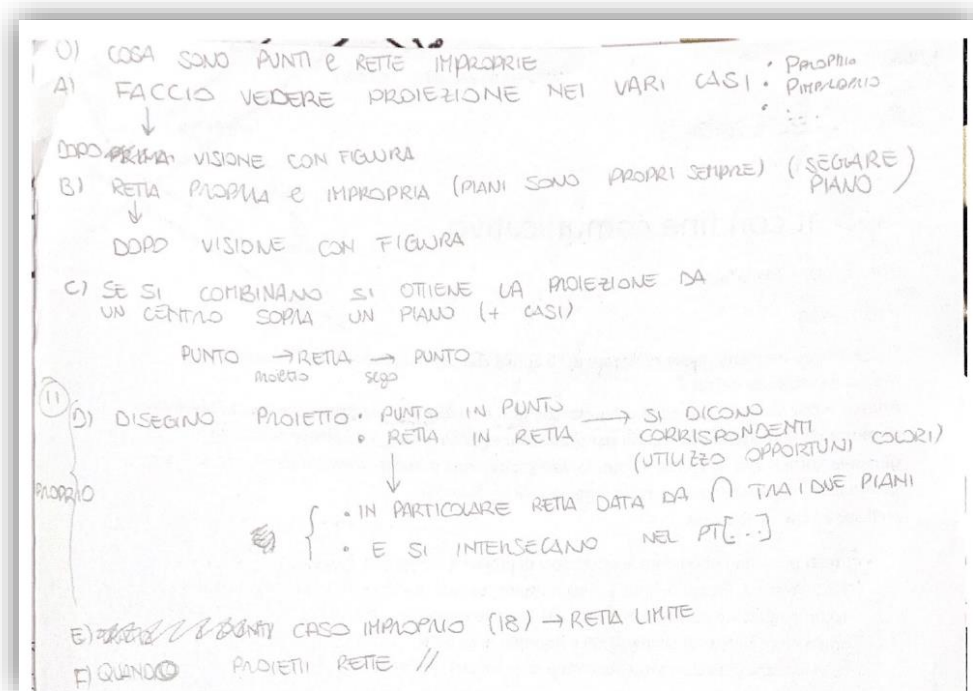 0) COSA SONO PUNTI e RETTE IMPROPRIE
A) FACCIO VEDERE PROIEZIONE NEI VARI CASI • PROPRIO
• IMPROPRIO
• ...
↓
DOPO VISIONE CON FIGURA
B) RETTA PROPRIA e IMPROPRIA (PIANI SONO PROPRI SEMPRE) (SEGARE PIANO)
↓
DOPO VISIONE CON FIGURA
C) SE SI COMBINANO SI OTTIENE LA PROIEZIONE DA
UN CENTRO SOPRA UN PIANO (+ CASI)
PUNTO → RETTA → PUNTO
proietto sego
11
D) DISEGNO PROIETTO • PUNTO IN PUNTO → SI DICONO
• RETTA IN RETTA CORRISPONDENTI
(UTILIZZO OPPORTUNI COLORI)
↓
PROPRIO
• IN PARTICOLARE RETTA DATA DA ∩ TRA I DUE PIANI
• E SI INTERSECANO NEL PT[...]
E) CASO IMPROPRIO (18) → RETTA LIMITE
F) QUANDO PROIETTI RETTE //